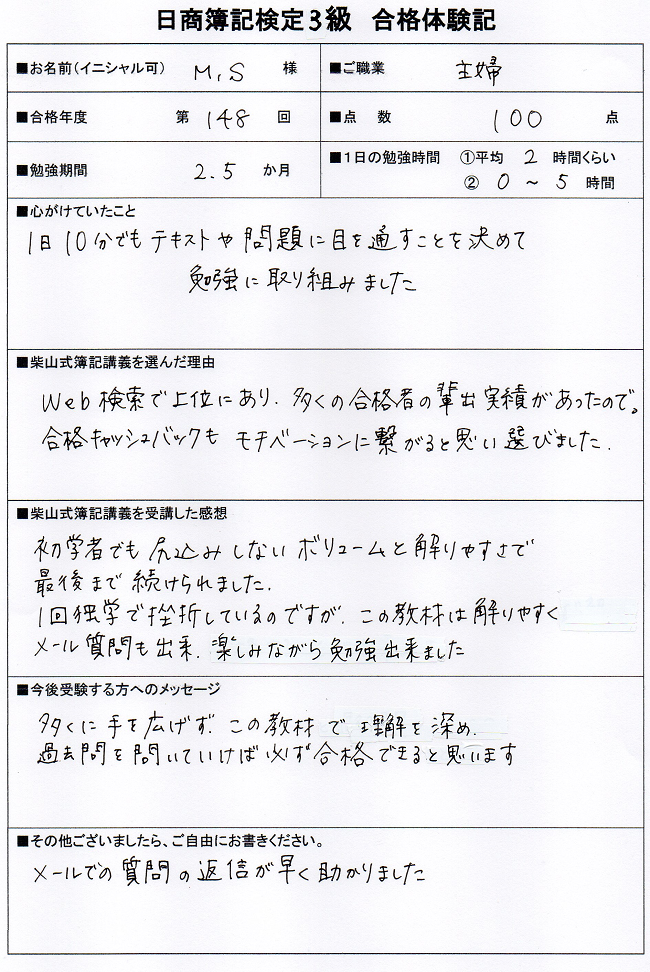 日商簿記検定3級 合格体験記
■お名前(イニシャル可) M,S 様 ■ご職業 主婦
■合格年度 第 148 回 ■点 数 100 点
■勉強期間 2.5 か月 ■1日の勉強時間 ①平均 2 時間くらい
② 0 ~ 5 時間
■心がけていたこと
1日10分でもテキストや問題に目を通すことを決めて
勉強に取り組みました
■柴山式簿記講義を選んだ理由
Web検索で上位にあり、多くの合格者の輩出実績があったので。
合格キャッシュバックもモチベーションに繋がると思い選びました.
■柴山式簿記講義を受講した感想
初学者でも尻込みしないボリュームと解りやすさで
最後まで続けられました.
1回独学で挫折しているのですが、この教材は解りやすく
メール質問も出来、楽しみながら勉強出来ました
■今後受験する方へのメッセージ
多くに手を広げず、この教材で理解を深め、
過去問を問いていけば必ず合格できると思います
■その他ございましたら、ご自由にお書きください。
メールでの質問の返信が早く助かりました